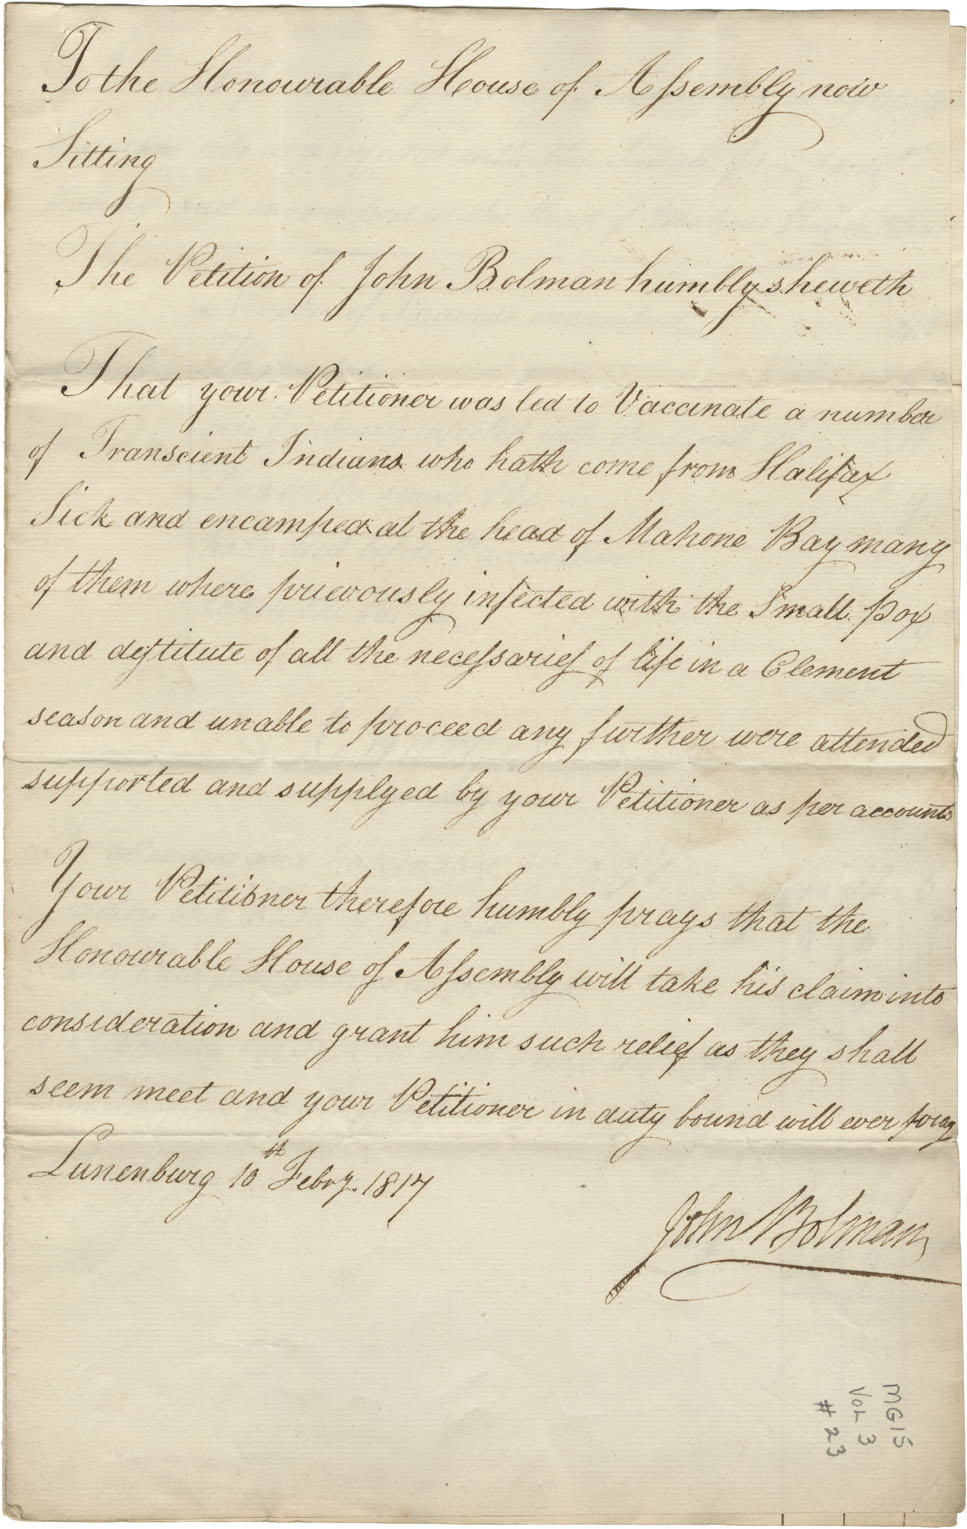 To the Honourable House of Assembly now
Sitting
The Petition of John Bolman humbly sheweth
That your Petitioner was led to Vaccinate a number
of Transcient Indians who hath come from Halifax
Sick and encamped at the head of Mahone Bay many
of them where prievously infected with the Small pox
and destitute of all the necessaries of life in a Clement
season and unable to proceed any further were attended
supported and supplyed by your Petitioner as per accounts
Your Petitioner therefore humbly prays that the
Honourable House of Assembly will take his claim into
consideration and grant him such relief as they shall
seem meet and your Petitioner in duty bound will ever pray
Lunenburg 10th Febry. 1817
John Bolman
MG15
Vol 3
#23